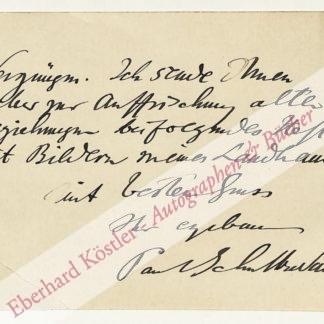 Vergnügen. Ich sende Ihnen
aber zur Auffrischung alter
Beziehungen beifolgendes Heft
mit Bildern meines Landhauses
mit besten Gruss
Ihr ergebener
Paul Schultze
Eberhard Köstler - Autographen & Bücher